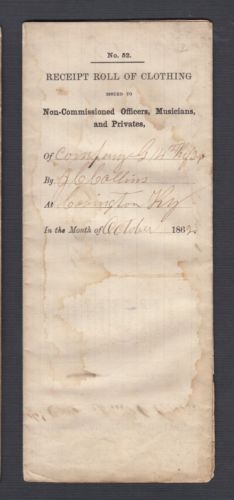 No. 52.
RECEIPT ROLL OF CLOTHING
ISSUED TO
Non-Commissioned Officers, Musicians,
and Privates,
Of Company G 14 Ky
By J C Collins
At Covington Ky
In the Month of October 1862.